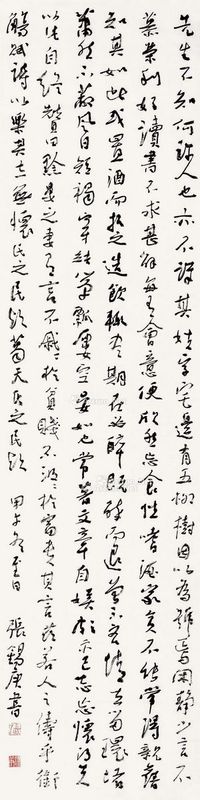 先生不知何許人也亦不詳其姓字宅邊有五柳樹因以為號焉閑靜少言不
慕榮利好讀書不求甚解每有會意便欣然忘食性嗜酒家貧不能常得親舊
知其如此或置酒而招之造飲輒盡期在必醉既醉而退曾不吝情去留環堵
蕭然不蔽風日短褐穿結簞瓢屢空晏如也常著文章自娛頗示己志忘懷得失
以此自終贊曰黔婁之妻有言不戚戚於貧賤不汲汲於富貴其言茲若人之儔乎銜
觴賦詩以樂其志無懷氏之民歟葛天氏之民歟 甲子冬至日 張錫庚書